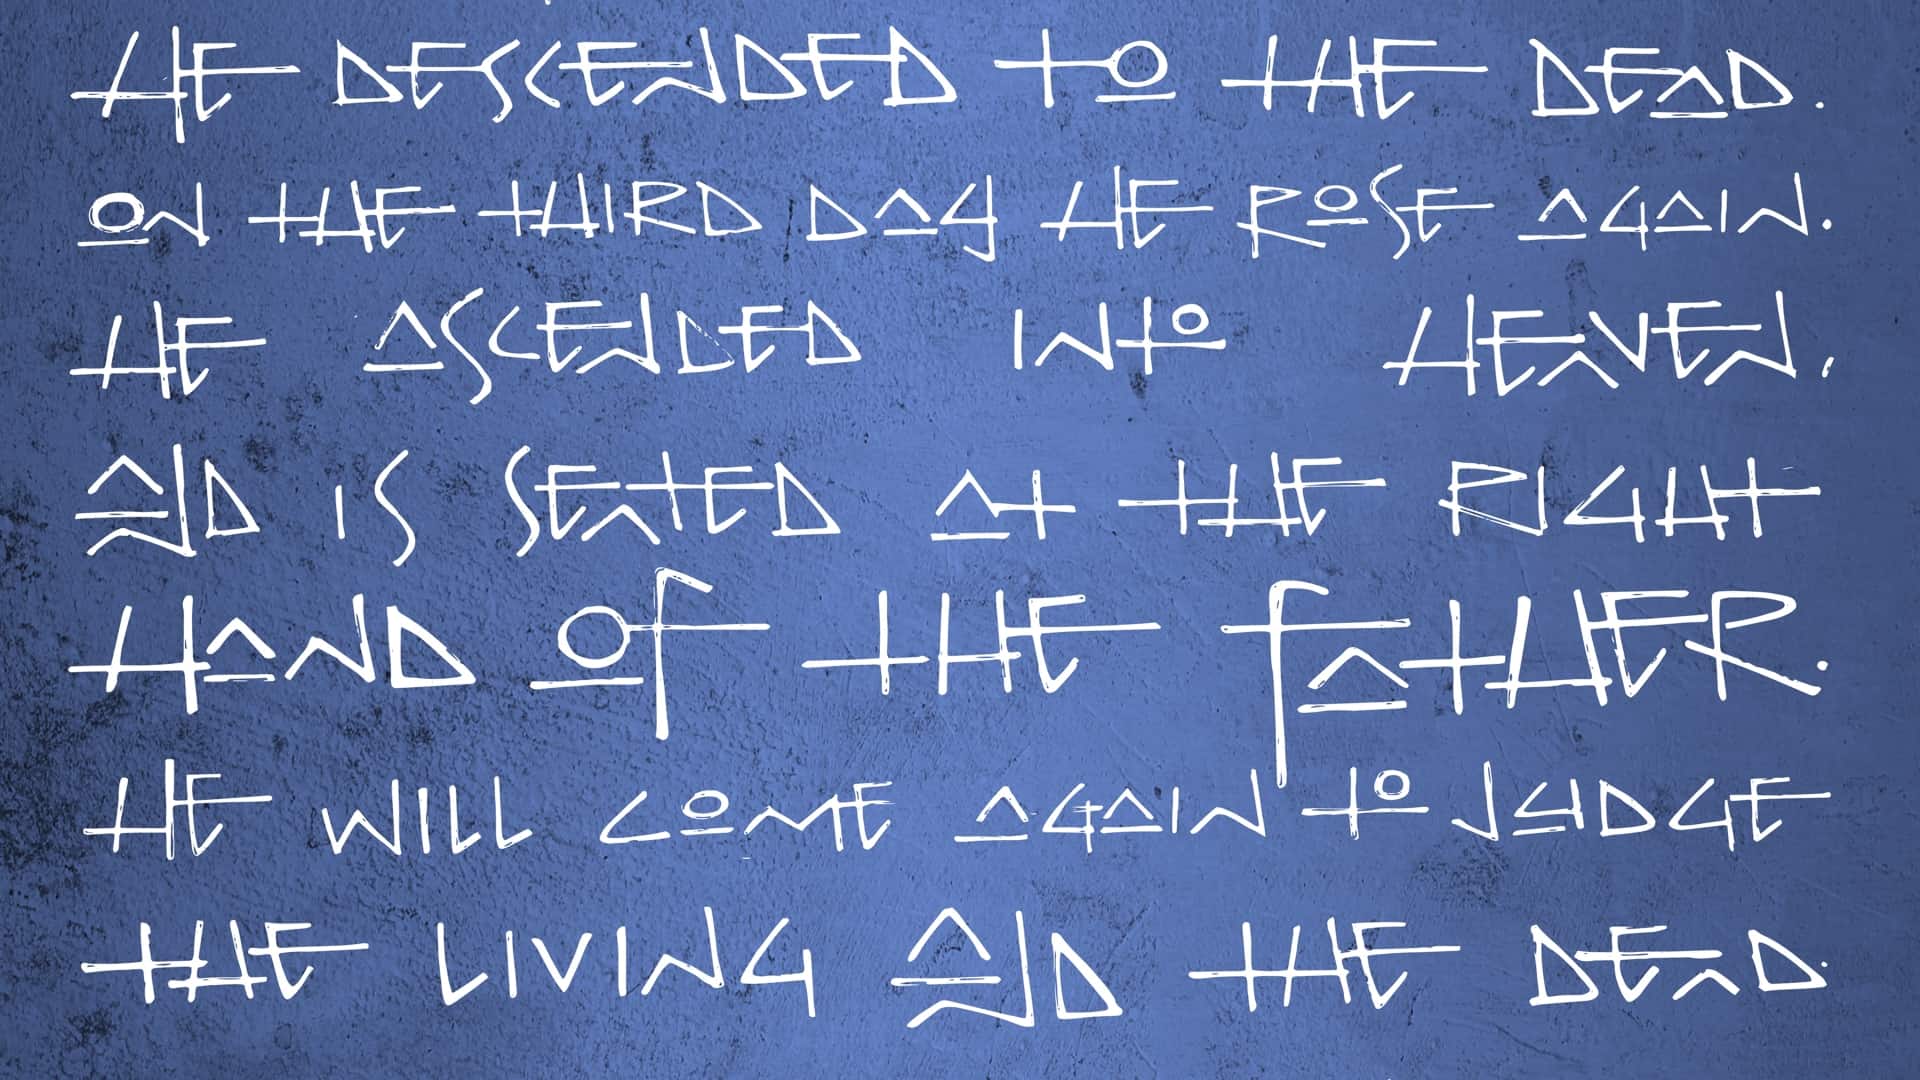 HE DESCENDED TO THE DEAD.
ON THE THIRD DAY HE ROSE AGAIN.
HE ASCENDED INTO HEAVEN,
AND IS SEATED AT THE RIGHT
HAND OF THE FATHER.
HE WILL COME AGAIN TO JUDGE
THE LIVING AND THE DEAD.